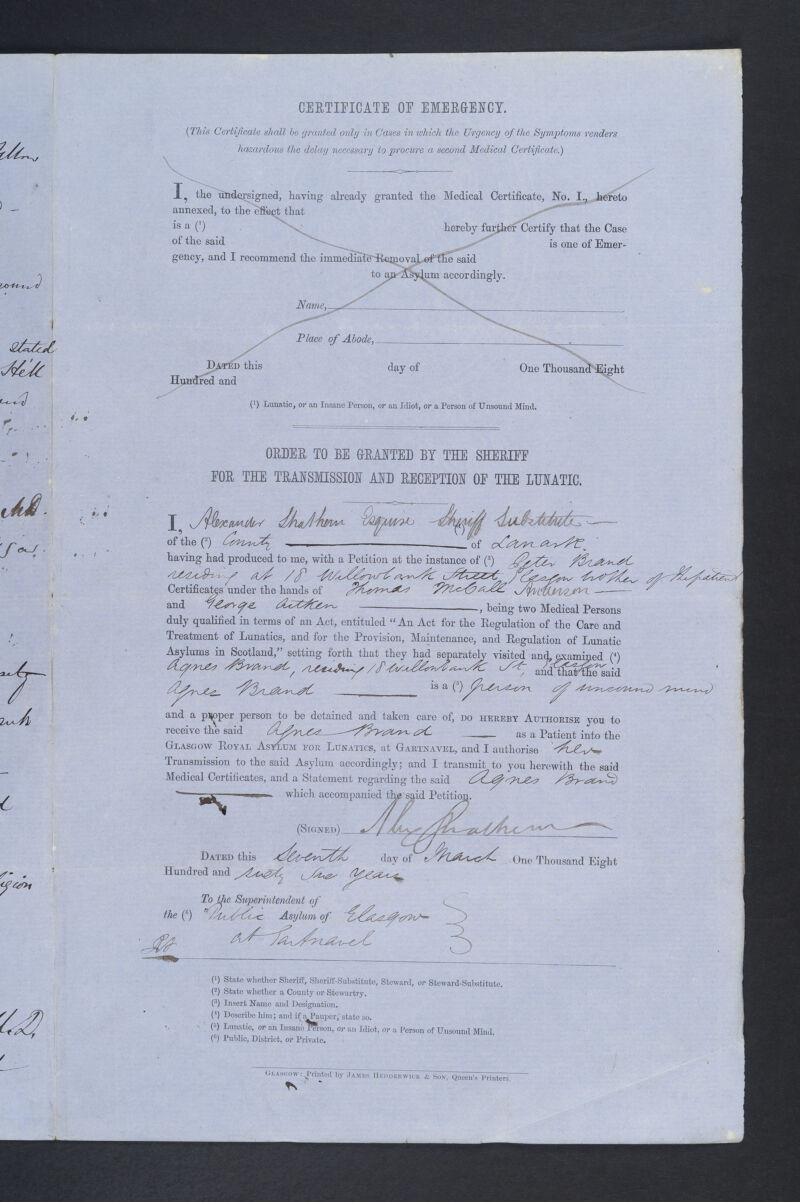 CERTIFICATE OF EMERGENCY.
(This Certificate shall be granted only in Cases in which the Urgency of the Symptoms renders
hazardous the delay necessary to procure a second Medical Certificate.)
I, the undersigned, having already granted the Medical Certificate, No. I., hereto
annexed, to the effect that
is a (¹) hereby further Certify that the Case
of the said is one of Emer-
gency, and I recommend the immediate Removal of the said
to an Asylum accordingly.
Name,
Place of Abode,
DATED this day of One Thousand Eight
Hundred and
(¹) Lunatic, or an Insane Person, or an Idiot, or a Person of Unsound Mind.
ORDER TO BE GRANTED BY THE SHERIFF
FOR THE TRANSMISSION AND RECEPTION OF THE LUNATIC.
I, Alexander Strathern Esquire Sheriff Substitute
of the (²) County of Lanark.
having had produced to me, with a Petition at the instance of (³) Peter Brand
residing at 18 Willowbank Street, Glasgow brother of the patient
Certificates under the hands of Thomas McCall Anderson
and George Aitken, being two Medical Persons
duly qualified in terms of an Act, entituled "An Act for the Regulation of the Care and
Treatment of Lunatics, and for the Provision, Maintenance, and Regulation of Lunatic
Asylums in Scotland," setting forth that they had separately visited and examined (⁴)
Agnes Brand, residing 18 Willowbank St, Glasgow and that the said
Agnes Brand is a (⁵) person of unsound mind
and a proper person to be detained and taken care of, DO HEREBY AUTHORISE you to
receive the said Agnes Brand as a Patient into the
GLASGOW ROYAL ASYLUM FOR LUNATICS, at GARTNAVEL, and I authorise her
Transmission to the said Asylum accordingly; and I transmit to you herewith the said
Medical Certificates, and a Statement regarding the said Agnes Brand
which accompanied the said Petition.
(SIGNED) Alex Strathern
DATED this Seventh day of March One Thousand Eight
Hundred and sixty years
To the Superintendent of
the (⁶) Public Asylum of Glasgow
at Gartnavel
(¹) State whether Sheriff, Sheriff-Substitute, Steward, or Steward-Substitute.
(²) State whether a County or Stewartry.
(³) Insert Name and Designation.
(⁴) Describe him; and if a Pauper, state so.
(⁵) Lunatic, or an Insane Person, or an Idiot, or a Person of Unsound Mind.
(⁶) Public, District, or Private.
GLASGOW: Printed by JAMES HEDDERWICK & SON, Queen's Printers.